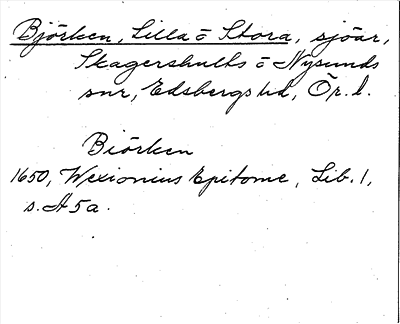 Björken, Lilla o Stora, sjöar,
Skagershults o Nysunds
snr, Edsbergs hd, Ör. l.
Biörken
1650, Wexionius Epitome, Lib. 1,
s. A 5a.